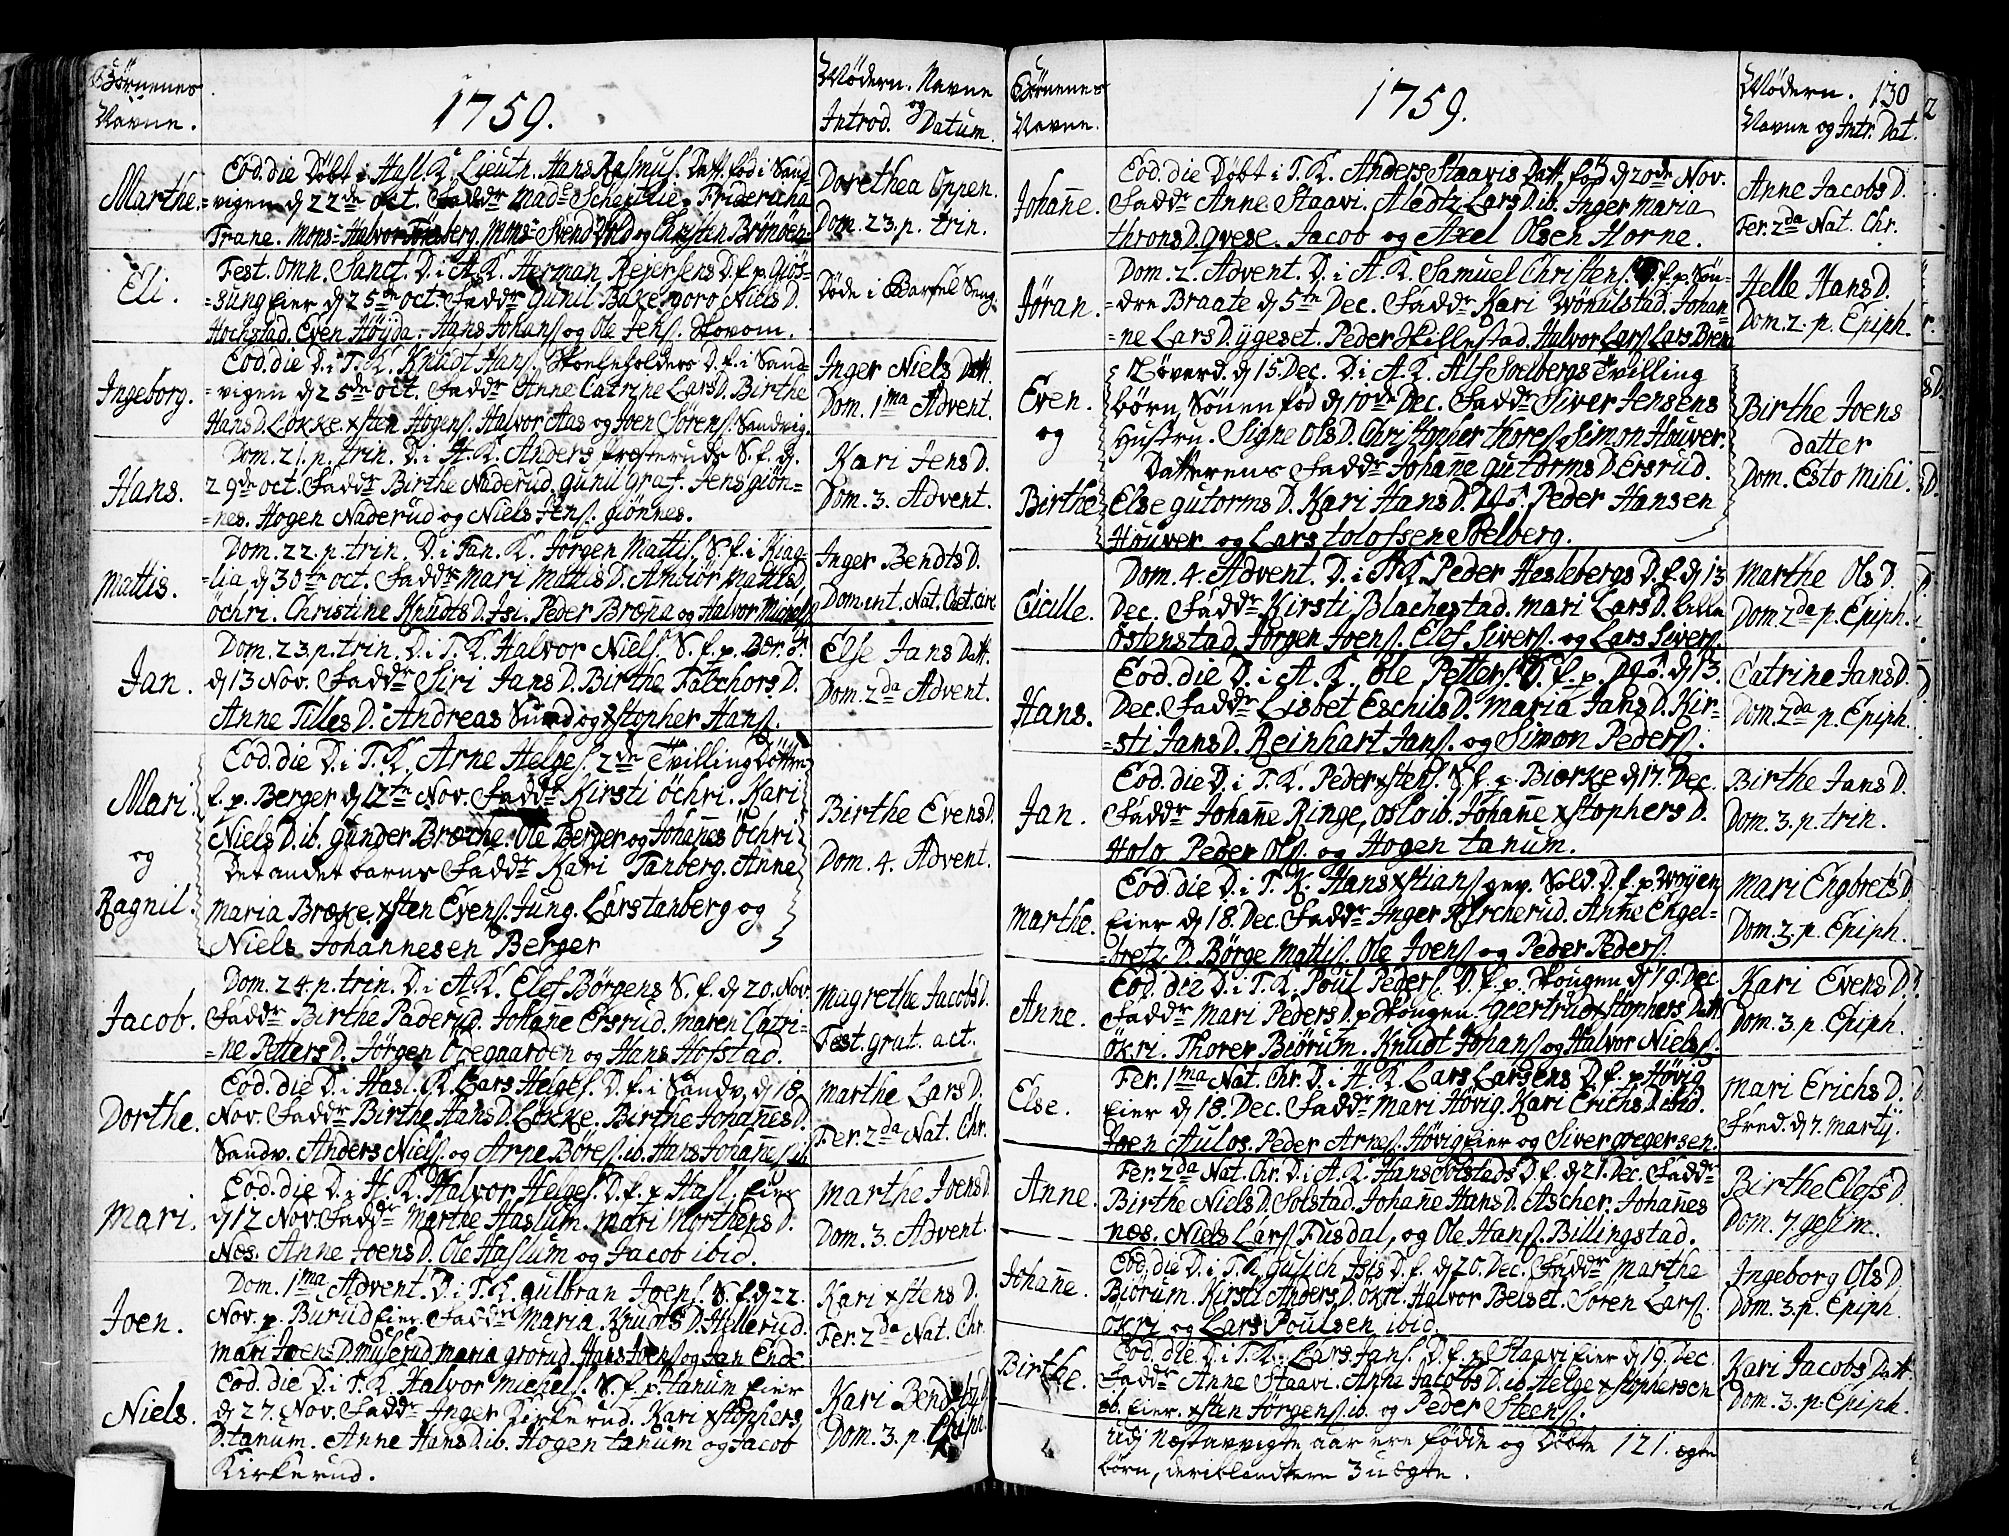 Børnenes
Navne.
1759.
Mødern. Navne
og
Introd. Datum.
Marthe.
Eod. die Døbt i Hasl. K. Lieutn. Hans Rasmus. Datt. fød i Sand-
vigen d 22de Oct. Faddr Mads Fridericha
Trane. Mons. Halvor Mons. Svend og Christen
Dorethea Oppen.
Dom. 23. p. trin.
Eli.
Fest. Omn. Sanct. D. i A. K. Herman Rejersens D. f. p. Giøs-
=sung eier d 25de Oct. Faddr Gunil Bakke, goro Niels D.
Hochstad. Even Høyda. Hans Johans. og Ole Jens. Skovom.
Døde i Barsel Seng.
Ingeborg.
Eod. die D. i T. K. Knudt Hans. Skoleholders D. f. i Sand-
=vigen d 25de Oct. Faddr Anne Catrine Lars D. Birthe
Hans D. Løkke. xsten Hogens. Halvor Aas og Joen Sørens. Sandvig.
Inger Niels Datt.
Dom. 1ma Advent.
Hans.
Dom. 21. p. trin. D. i A. K. Anders Prosteruds S. f. d.
29de Oct. Faddr Birthe Naderud. Gunil Graf. Jens giøn-
=nes. Hogen Naderud og Niels Jens. giønnes.
Kari Jens D.
Dom. 3. Advent.
Mattis.
Dom. 22. p. trin. D. i Tan. K. Jørgen Mattis. S. f. i Kiag-
=lia d 30te Oct. Faddr Mari Mattis D. Ambiør Mattis D.
Øchri. Christine Knudts D. Isi. Peder Brænna og Halvor Michels.
Inger Bendts D.
Dom. nt. Nat. Circ.
Jan.
Dom. 23. p. trin. D. i T. K. Halvor Niels. S. f. p. Bær. J.
d 13 Nov. Faddr Siri Jans D. Birthe Falchors D.
Anne Tilles D. Andreas Sund og xstopher Hans.
Else Jans Datt.
Dom. 2da Advent.
Mari
og
Ragnil.
Eod. die D. i T. K. Arne Helges. 2de Tvilling Døttre
f. p. Berger d 12te Nov. Faddr Kirsti Øchri. Kari
Niels D. ib. Gunder Bræche. Ole Berger og Johannes Øchri
Det andet barns Faddr Kari Tanberg. Anne
Maria Bræke. xsten Evens. Jung. Lars tanberg og
Niels Johannesen Berger
Birthe Evens D.
Dom. 4. Advent.
Jacob.
Dom. 24. p. trin. D. i A. K. Elef Børgens S. f. d 20. Nov.
Faddr Birthe Paderud. Johane Ersrud. Maren Catri-
=ne Petters D. Jørgen Odegaarden og Hans Hofstad.
Magrethe Jacobs D.
Fest. grat. act.
Dorthe.
Eod. die D. i Hasl. K. Lars Helges. D. f. i Sandv. d 18
Nov. Faddr Birthe Hans D. Løkke. Birthe Johannes D.
Sandv. Anders Niels. og Arne Børes. ib. Hans Johannes. ib.
Marthe Lars D.
Fer. 2da Nat. Chr.
Mari.
Eod. die D. i H. K. Halvor Helges. D. f. p. Hasl. eier
d 12 Nov. Faddr Marthe Haslum. Mari Morthens D.
Nes. Anne Joens D. Ole Haslum og Jacob ibid.
Marthe Joens D.
Dom. 3. Advent.
Joen.
Dom. 1ma Advent. D. i T. K. Gulbran Joens. S. f. d 22.
Nov. p. Burud Eier. Faddr Maria Knudts D. Hellerud.
Mari Joens D. Muserud. Maria Grorud. Hans Joens. og Jan Ende
Kari xstens D.
Fer. 2da Nat. Chr.
Niels.
Eod. die D. i T. K. Halvor Michels. S. f. p. tanum Eier
d 27. Nov. Faddr Inger Kirkerud. Kari xstophers
D. tanum. Anne Hans D. ib. Hogen tanum og Jacob
Kirkerud.
Kari Bends D.
Dom. 3. p. Epiph.
Børnenes
Navne.
1759.
Mødern. 130
Navne og Intr. Dat.
Johanne.
Eod. die Døbt i T. K. Anders Staavis Datt. fød d 20de Nov.
Faddr Anne Staavi. Aledtz Lars D. ib. Inger Maria
throns D. Gvese. Jacob og Axel Olsen Horne.
Anne Jacobs D.
Fer. 2da Nat. Chr.
Jøran.
Dom. 2. Advent. D. i A. K. Samuel Christens. D. f. p. Søn-
dre Braate d 5te Dec. Faddr Kari Wønulstad. Johan-
=ne Lars D. ygeset. Peder Hillestad. Halvor Lars. Lars Brena
Helle Hans D.
Dom. 2. p. Epiph.
Even.
og
Birthe
Løverd. d 15. Dec. D. i A. K. Alf Solbergs Tvilling
børn, Sønen fød d 10de Dec. Faddr Siver Jensens
Hustru. Signe Ols D. Christopher thores. Simon Houver.
Datterens Faddr Johanne Gutorms D. Ersrud.
Else gutorms D. Kari Hans D. Peder Hansen
Houver og Lars tolofssen Solberg.
Birthe Joens
datter
Dom. Esto Mihi.
Cicille.
Dom. 4. Advent. D. i A. K. Peder Heslebergs D. f. d 13
Dec. Faddr Kirsti Blachestad. Mari Lars D. Lille
Østenstad. Jørgen Joens. Elef Sivers. og Lars Sivers.
Marthe Ols D.
Dom. 2da p. Epiph.
Hans.
Eod. die D. i A. K. Ole Petters. S. f. p. d 13.
Dec. Faddr Lisbet Eschils D. Maria Jans D. Kir-
=sti Jans D. Reinhart Jans. og Simon Peders.
Catrine Jans D.
Dom. 2da p. Epiph.
Jan.
Eod. die D. i T. K. Peder xstens. S. f. p. Biørke d 17. Dec.
Faddr Johanne Ringe, Oslo ib. Johanne xstophers D.
Holo. Peder Ols. og Hogen tanum.
Birthe Jans D.
Dom. 3. p. trin.
Marthe.
Eod. die D. i T. K. Hans xstians. gev. Sold. D. f. p. Wøyen
Eier d 18. Dec. Faddr Inger Kircherud. Anne Engel-
=bretz D. Børge Mattis. Ole Joens. og Peder Peders.
Mari Engbrets D.
Dom. 3. p. Epiph.
Anne.
Eod. die D. i T. K. Poul Peders. D. f. p. Skougen d 19. Dec.
Faddr Mari Peders D. p. Skougen. Geertrud xstophers Datt.
Økri. Thorer Biørum. Knudt Johans. og Halvor Niels.
Kari Evens D.
Dom. 3. p. Epiph.
Else.
Fer. 1ma Nat. Chr. D. i H. K. Lars Larsens D. f. p. Høvig
Eier d 18. Dec. Faddr Mari Høvig. Kari Erichs D. ibid.
Joen Aulos. Peder Arnes. Høvig Eier og Siver Gregersen.
Mari Erichs D.
Fred. d 7. Martij.
Anne.
Fer. 2da Nat. Chr. D. i A. K. Hans Solstads D. f. d 21. Dec. Faddr
Birthe Niels D. Solstad. Johane Hans D. Ascher. Johannes
nes. Niels Lars. Fusdal, og Ole Hans. Billingstad.
Birthe Elefs D.
Dom. 7. gesim.
Johanne.
Eod. die D. i T. K. Gulich Isis D. f. d 20. Dec. Faddr Marthe
Biørum. Kirsti Anders D. Økri. Halvor Beiset. Søren Lars.
Økri og Lars Poulsen ibid.
Ingeborg Ols D.
Dom. 3. p. Epiph.
Birthe.
Eod. die D. i T. K. Lars Jans. D. f. p. Staavi Eier d 19. Dec.
Faddr Anne Staavi. Anne Jacobs D. ib. Helge xstophersen
ib. Eier. xsten Jørgens. ib. og Peder Steens.
Kari Jacobs Datt.
Dom. 3. p. Epiph.
Udj Næstavvigte aar ere fødde og Døbte 121. ægte
børn, deriblandt ere 3 uægte.